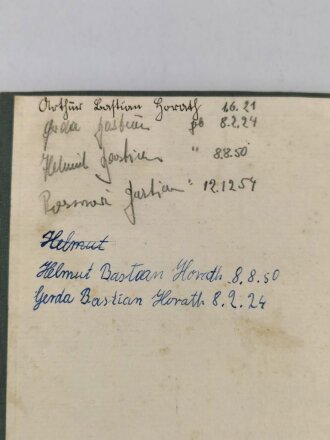 Arthur Bastian Horath 1.6.21
Gerda Bastian gb 8.2.24
Helmut Bastian " 8.8.50
Bastian " 12.12.54
Helmut
Helmut Bastian Horath 8.8.50
Gerda Bastian Horath 8.2.24